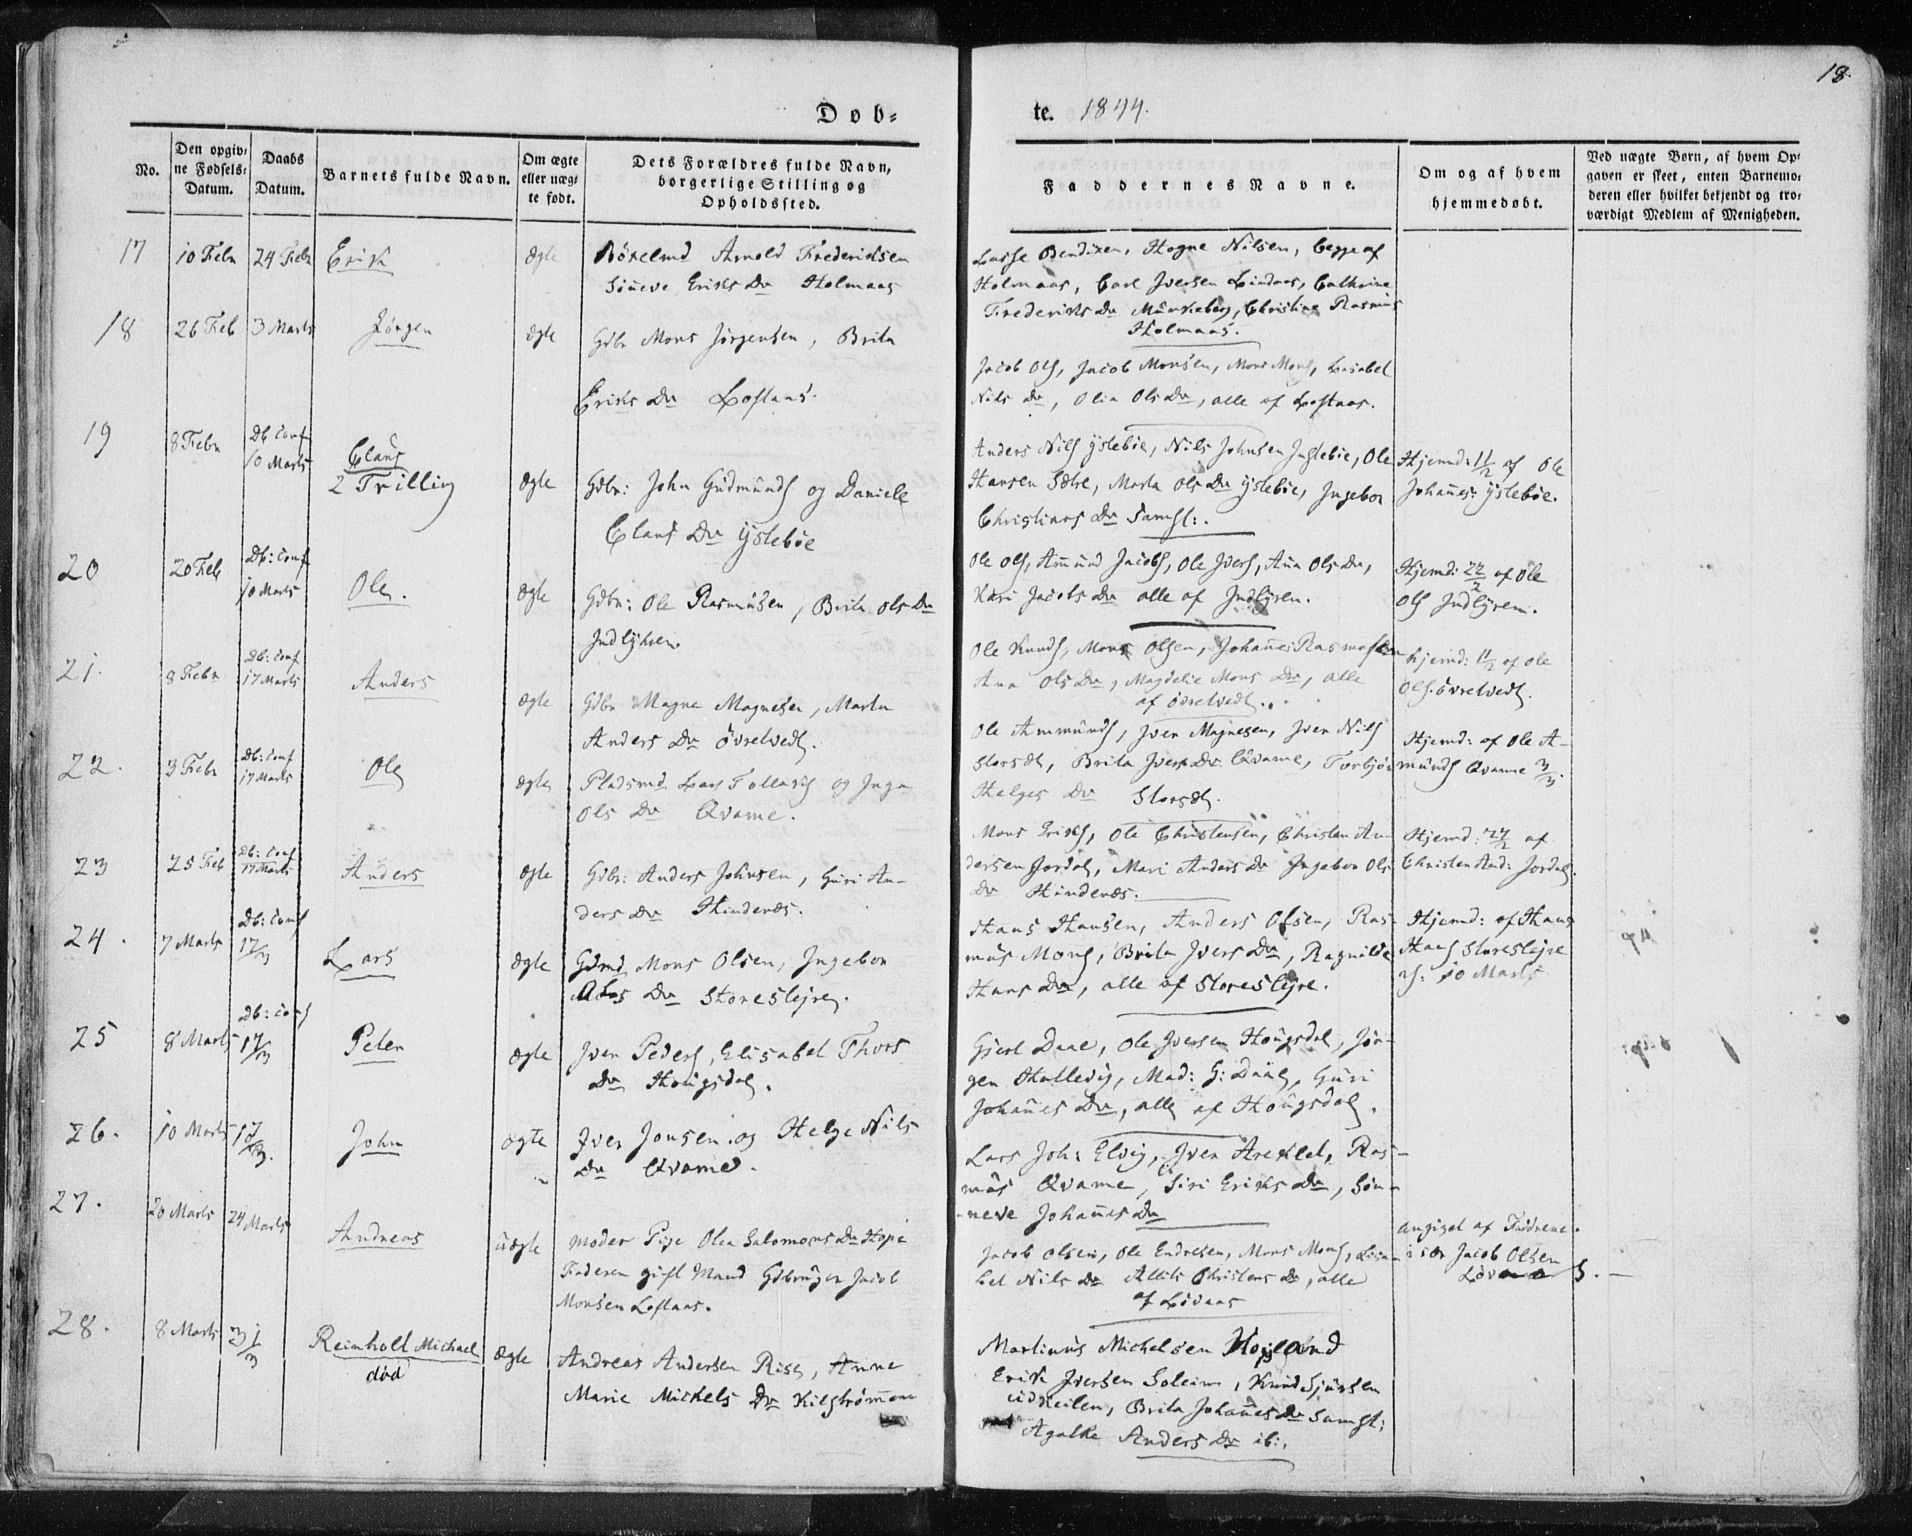 18.
Døb=
te. 1844.
No.
Den opgiv=
ne Fødsels=
Datum.
Daabs
Datum.
Barnets fulde Navn.
Om ægte
eller uæg=
te født.
Dets Forældres fulde Navn,
borgerlige Stilling og
Opholdssted.
Faddernes Navne.
Om og af hvem
hjemmedøbt.
Ved uægte Børn, af hvem Op=
gaven er skeet, enten Barnemo=
deren eller hvilket bekjendt og tro=
værdigt Medlem af Menigheden.
17 10 Febr 24 Febr Erik ægte Arnold Frederiksen
Eriks Dr Holmaas
Lasse Bendixen, Hogne Nilsen, begge af
Holmaas, Carl Iversen Lindaas, Cathrine
Frederiks Dr Munkeberg, Christine Rasmus
Holmaas.
18 26 Feb 3 Marts Jørgen ægte Gdbr Mons Jørgensen, Brita
Eriks Dr Loftaas.
Jacob Ols, Jacob Monsen, Mons Mons, Lisabet
Nils Dr, Olia Ols Dr, alle af Loftaas.
19 8 Febr Db: Conf
10 Marts
Claus
2 Tvilling ægte Gdbr: John Gudmunds og Daniele
Claus Dr Ystebøe
Anders Nils Ystebøe, Nils Johnsen Ystebøe, Ole
Hansen Sætre, Marta Ols Dr Ystebøe, Ingebor
Christians Dr Samst:.
Hjemd: 11/2 af Ole
Johannes: Ystebøe.
20 20 Feb Db: Conf
10 Marts Ole. ægte Gdbr: Ole Rasmusen, Brita Ols Dr
Ole Ols, Amund Jacobs, Ole Ivers, Ana Ols Dr,
Kari Jacobs Dr alle af
Hjemd: 22/2 af Ole
Ols
21. 8 Febr Db: Conf
17 Marts Anders ægte Gdbr Magne Magnesen, Marta
Anders Dr Øvretvedt.
Ole Knuds, Mons Olsen, Johanes Rasmussen
Ana Ols Dr, Magdelie Mons Dr, alle
af Øvretvedt.
hjemd: 11/2 af Ole
Ols. Øvretvedt.
22. 3 Febr Db: Conf
17 Marts Ole ægte Pladsmd Lars Tollevs og Inga
Ols Dr Qvame.
Ole Ammunds, Iver Magnesen, Iver Nils
Brita Ivers Dr Qvame, Torbjør
Helges Dr
Hjemd: af Ole A-
munds Qvame 3/3.
23 25 Feb Db: Conf
17 Marts Anders ægte Gdbr: Anders Johnsen, Guri An-
ders Dr Hindenæs.
Mons Eriks, Ole Christensen, Christen An-
dersen Jordal, Mari Anders Dr Ingebor Ols
Dr Hindenæs.
Hjemd: 27/2 af
Christen And: Jordal.
24. 7 Marts Db: Conf
17/3 Lars ægte Gdmd Mons Olsen, Ingebor
Dr Storestejre.
Hans Hansen, Anders Olsen, Ras-
mus Mons, Brita Ivers Dr, Ragnilde
Hans Dr, alle af Storestejre.
Hjemd: af Hans
Hans Storestejre
10 Marts
25 8 Marts Db: Conf
17/3 Peter ægte Iver Peders, Elisabet Thors
Dr Hougsdal.
Gjert Daae, Ole Iversen Hougsdal, Jør-
gen Hallevig, Mad: G: Daae, Guri
Johanes Dr, alle af Hougsdal.
26. 10 Marts 17/3. John ægte Iver Jonsen og Helge Nils
Dr Qvame.
Lars Joh: Elvig, Iver Ras-
mus Qvame, Siri Eriks Dr, Søn-
neve Johanes Dr
27. 20 Marts 24 Marts Andreas uægte Moder Pige Olea Salomons Dr Hope
Faderen gift Mand Gdbruger Jacob
Monsen Loftaas.
Jacob Olsen, Ole Endresen, Mons Mons, Lisa-
bet Nils Dr Christens Dr, alle
af Løvaas
angivet af Fadrene.
især Jacob Olsen
28. 8 Marts 31/3 Reinholt Michael
død ægte Andreas Andersen Risø, Anne
Marie Michels Dr Kilstrømmen
Martinus Michelsen
Erik Iversen Soleim, Knud Sjursen
Brita Johanes Dr Samst:
Anders Dr ib:.